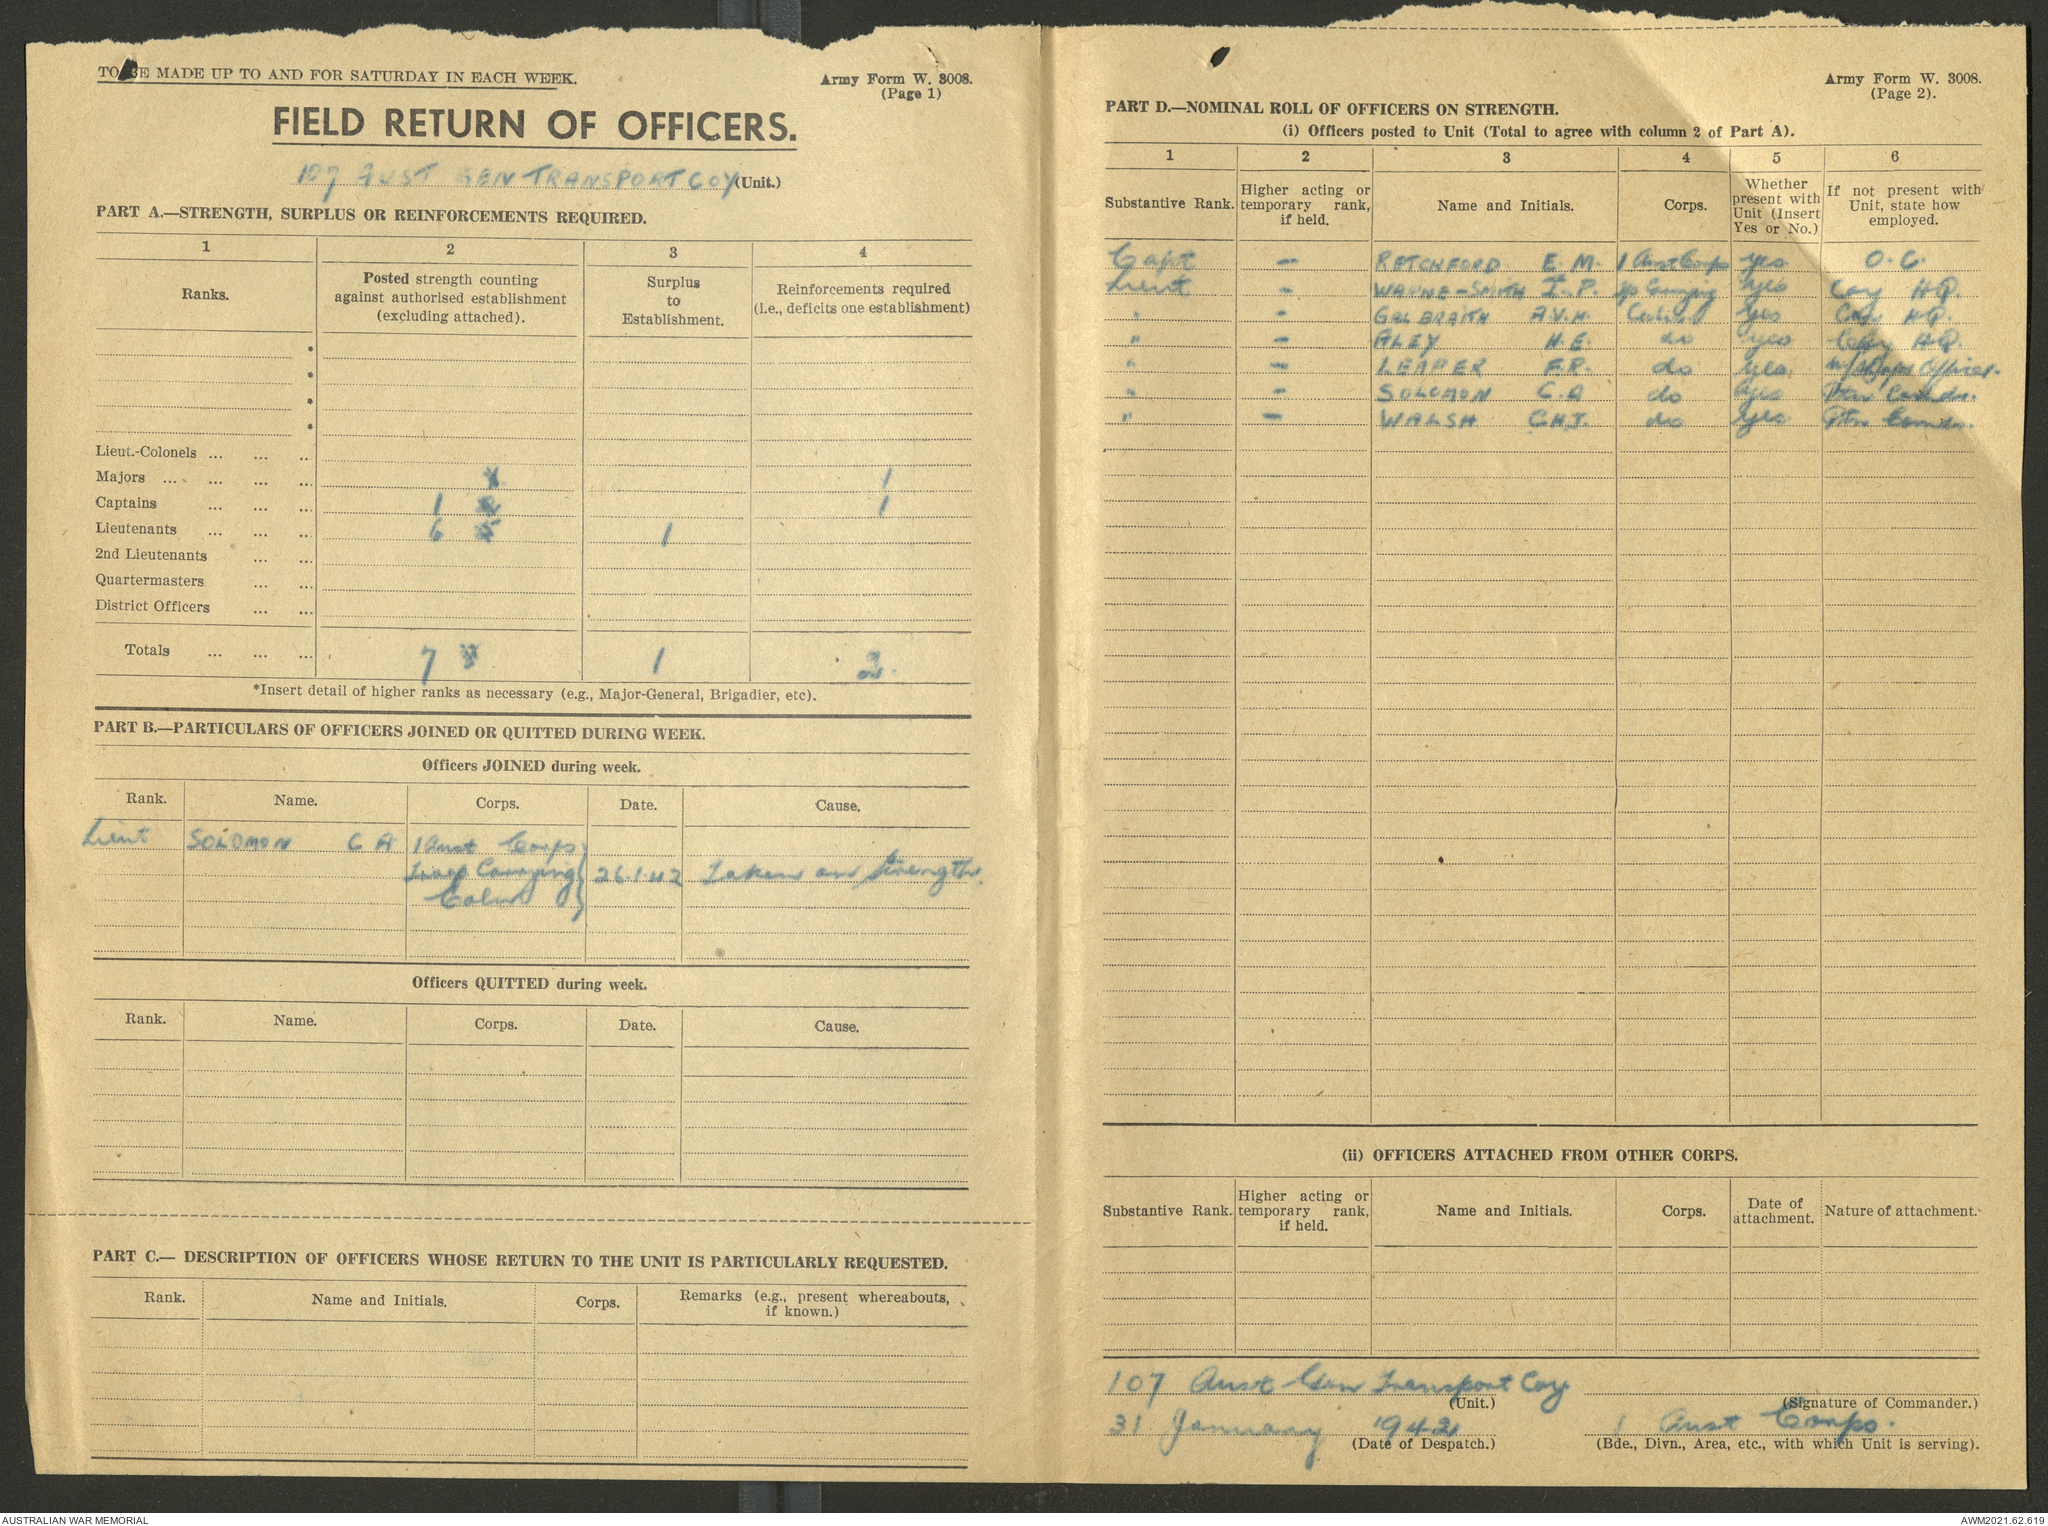 TO BE MADE UP TO AND FOR SATURDAY IN EACH WEEK.
Army Form W. 3008.
(Page 1)
FIELD RETURN OF OFFICERS.
107 AUST GEN TRANSPORT COY (Unit.)
PART A.—STRENGTH, SURPLUS OR REINFORCEMENTS REQUIRED.
1 2 3 4
Ranks. Posted strength counting against authorised establishment (excluding attached). Surplus to Establishment. Reinforcements required (i.e., deficits one establishment)
*
*
*
*
Lieut.-Colonels ... ... ..
Majors ... ... ... ... 1
Captains ... ... ... 1 1
Lieutenants ... ... ... 6 1
2nd Lieutenants ... ...
Quartermasters ... ...
District Officers ... ...
Totals ... ... ... 7 1 2.
*Insert detail of higher ranks as necessary (e.g., Major-General, Brigadier, etc).
PART B.—PARTICULARS OF OFFICERS JOINED OR QUITTED DURING WEEK.
Officers JOINED during week.
Rank. Name. Corps. Date. Cause.
Lieut SOLOMON C A 1 Aust Corps
Troop Carrying 26.1.42 Taken on Strength.
Colmn
Officers QUITTED during week.
Rank. Name. Corps. Date. Cause.
PART C.— DESCRIPTION OF OFFICERS WHOSE RETURN TO THE UNIT IS PARTICULARLY REQUESTED.
Rank. Name and Initials. Corps. Remarks (e.g., present whereabouts, if known.)
Army Form W. 3008.
(Page 2).
PART D.—NOMINAL ROLL OF OFFICERS ON STRENGTH.
(i) Officers posted to Unit (Total to agree with column 2 of Part A).
1 2 3 4 5 6
Substantive Rank. Higher acting or temporary rank, if held. Name and Initials. Corps. Whether present with Unit (Insert Yes or No.) If not present with Unit, state how employed.
Capt — RETCHFORD E. M. 1 Aust Corps yes O. C.
Lieut - WAUNE-SMITH I. P. Carrying yes Coy H.Q.
" - GALBRAITH A.V.H. yes Coy H.Q.
" - ALEY H.E. do yes Coy H.Q.
" - LEAPER F.R. do yes Officer.
" - SOLOMON C.A do yes Ptn Comdr.
" - WALSH C.H.J. do yes Ptn Comdr.
(ii) OFFICERS ATTACHED FROM OTHER CORPS.
Substantive Rank. Higher acting or temporary rank, if held. Name and Initials. Corps. Date of attachment. Nature of attachment.
107 Aust Gen Transport Coy
(Unit.) (Signature of Commander.)
31 January 1942 1 Aust Corps.
(Date of Despatch.) (Bde., Divn., Area, etc., with which Unit is serving).
AUSTRALIAN WAR MEMORIAL
AWM2021.62.619